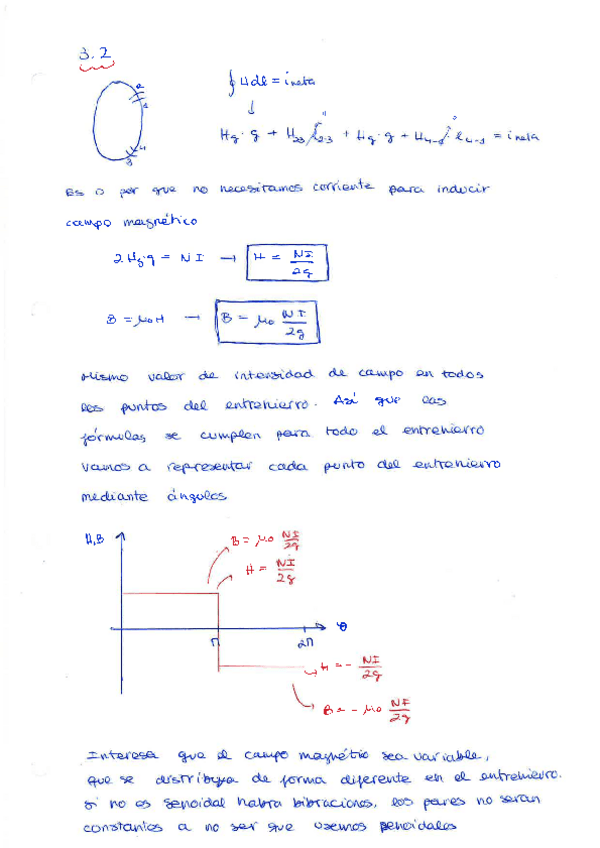 3.2
∮ H dl = i neta
↓
Hg · g + H23 l2-3 + Hg · g + H4-1 l4-1 = i neta
2
1
4
3
0
0
Es 0 por que no necesitamos corriente para inducir
campo magnético
2 Hg·g = N I → H = NI/2g
B = μ0 H → B = μ0 NI/2g
Mismo valor de intensidad de campo en todos
los puntos del entrehierro. Así que las
fórmulas se cumplen para todo el entrehierro
vamos a representar cada punto del entrehierro
mediante ángulos
H,B
B = μ0 NI/2g
H = NI/2g
π
2π
θ
H = - NI/2g
B = - μ0 NI/2g
Interesa que el campo magnético sea variable,
que se distribuya de forma diferente en el entrehierro.
si no es senoidal habra bibraciones, los pares no seran
constantes a no ser que usemos senoidales